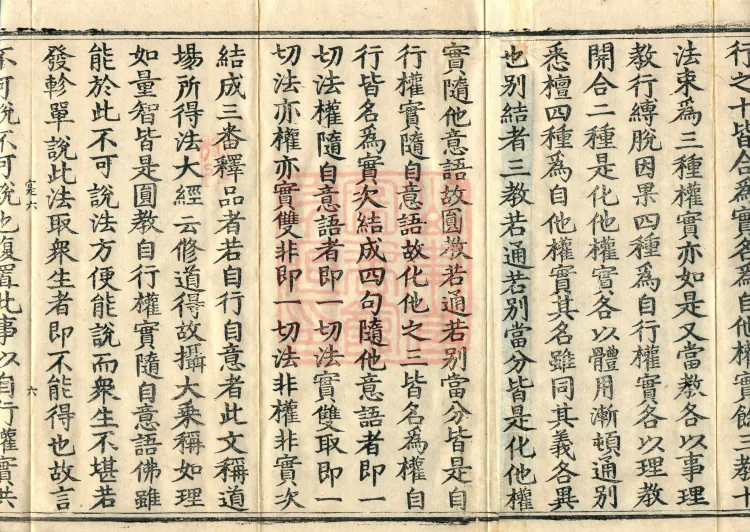 行之十皆合為實名為自他權實餘三教十
法束為三種權實亦如是又當教各以事理
教行縛脫因果四種為自行權實各以理教
開合二種是化他權實各以體用漸頓通別
悉檀四種為自他權實其名雖同其義各異
也別結者三教若通若別當分皆是化他權
實隨他意語故圓教若通若別當分皆是自
行權實隨自意語故化他之三皆名為權自
行皆名為實次結成四句隨他意語者即一
切法權隨自意語者即一切法實雙取即一
切法亦權亦實雙非即一切法非權非實次
結成三番釋品者若自行自意者此文稱道
場所得法大經云修道得故攝大乘稱如理
如量智皆是圓教自行權實隨自意語佛雖
能於此不可說法方便能說而眾生不堪若
發軫單說此法取眾生者即不能得也故言
寔六 六
不可說不可說也復置此事以自行權實共